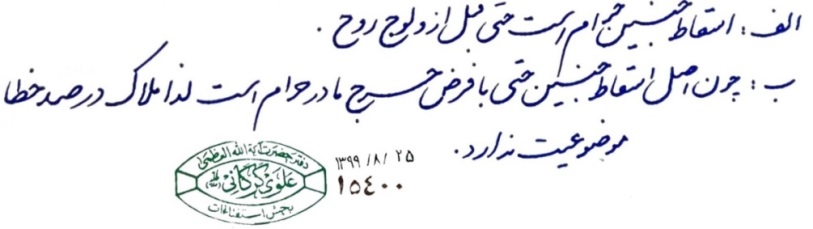 الف: اسقاط جنین حرام است حتی قبل از ولوج روح.
ب: چون اصل اسقاط جنین حتی با فرض حرج مادر حرام است لذا ملاک درصد خطا
موضوعیت ندارد.
۱۳۹۹/۸/۲۵
۱۵۴۰۰
دفتر حضرت آیة الله العظمی
علوی گرگانی
بخش استفتائات